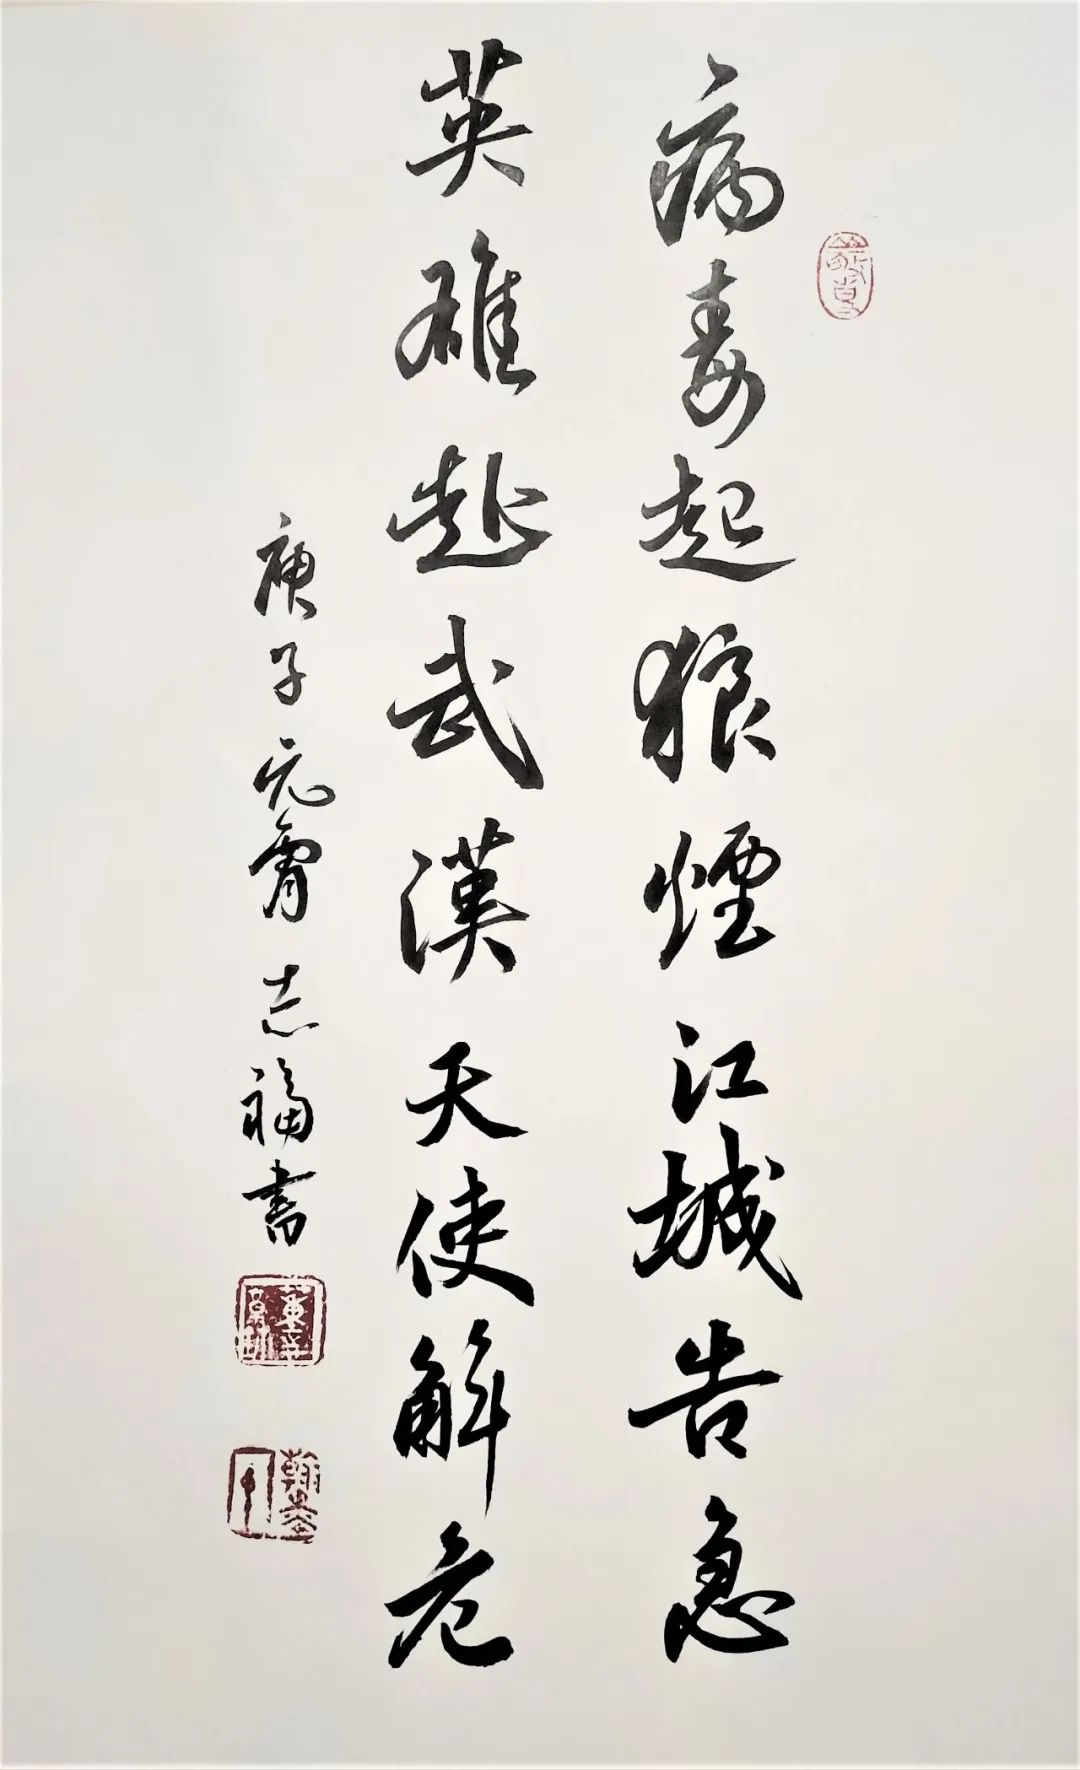 病毒起狼煙江城告急
英雄赴武漢天使解危
庚子元宵志福書